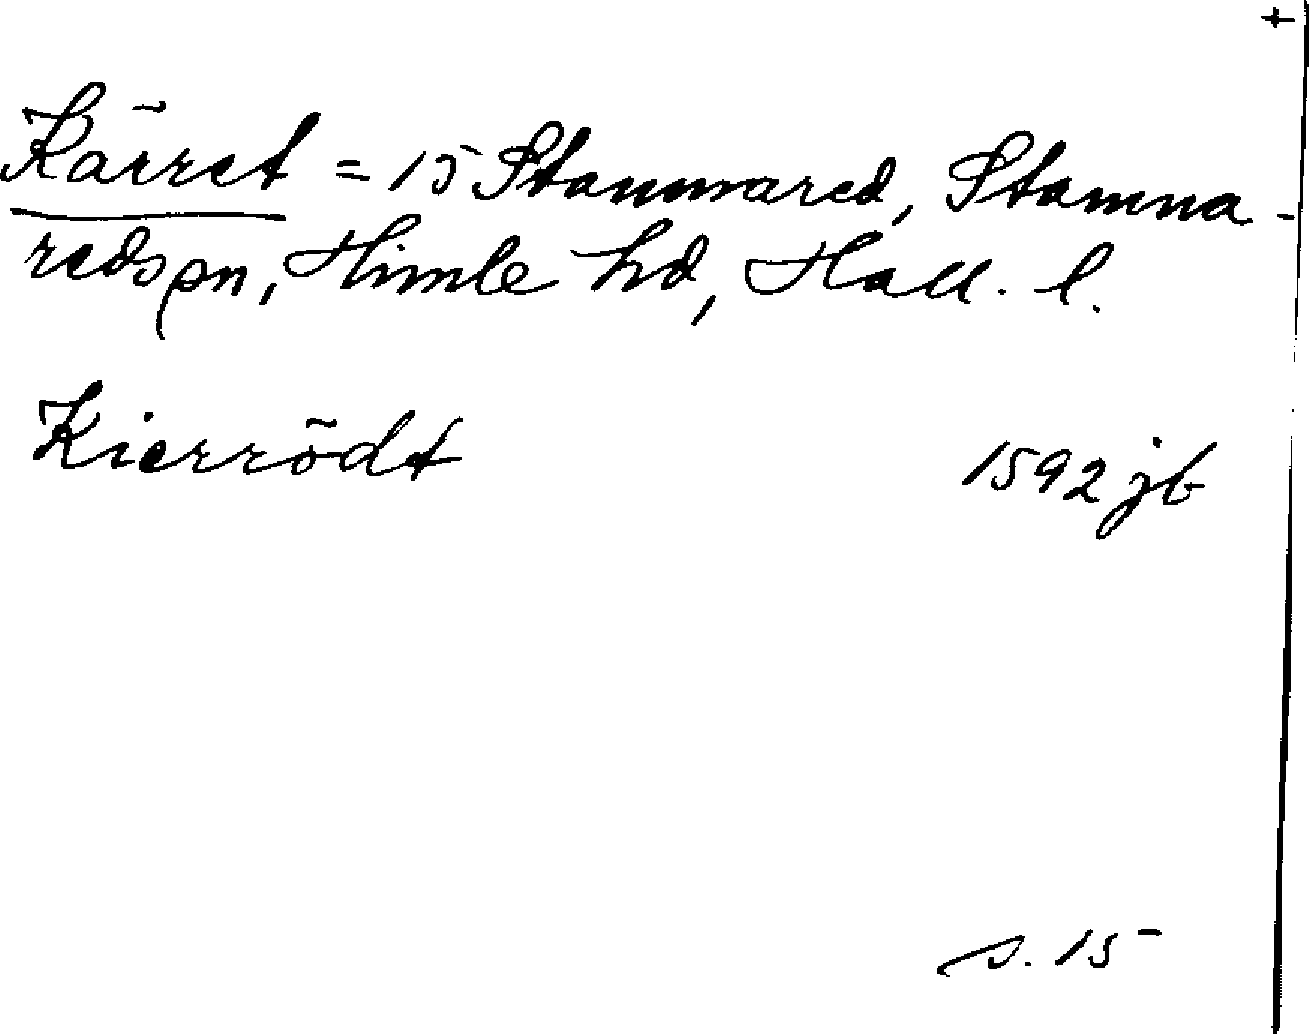 +
Kärret = 15 Stamnared, Stamna-
reds sn, Himle hd, Hall. l.
Kierrödt 1592 jb
s. 15